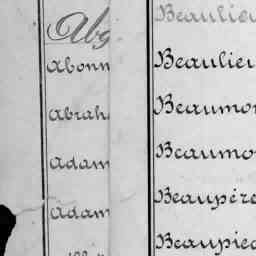 Abg
Abonn
Abrah
Adam
Adam
Beaulieu
Beaulieu
Beaumon
Beaumo
Beaupére
Beaupied